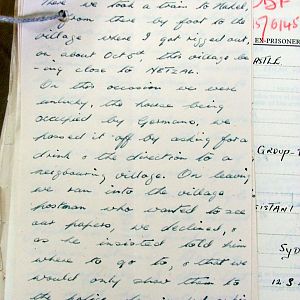 There we took a train to Hasel,
from there by foot to the
village where I got rigged out,
on about Oct 8th this village be
-ing close to METZAL.
On this occasion we were
unlucky, the house being
occupied by Germans, we
passed it off by asking for a
drink & the direction to a
neigbouring village. On leaving
we ran into the village
postman who wanted to see
our papers, we declined, &
as he insisted told him
where to go to, & that we
would only show them to
EX-PRISONER
ASTLE
GROUP-
SISTANT
SYD
12.8